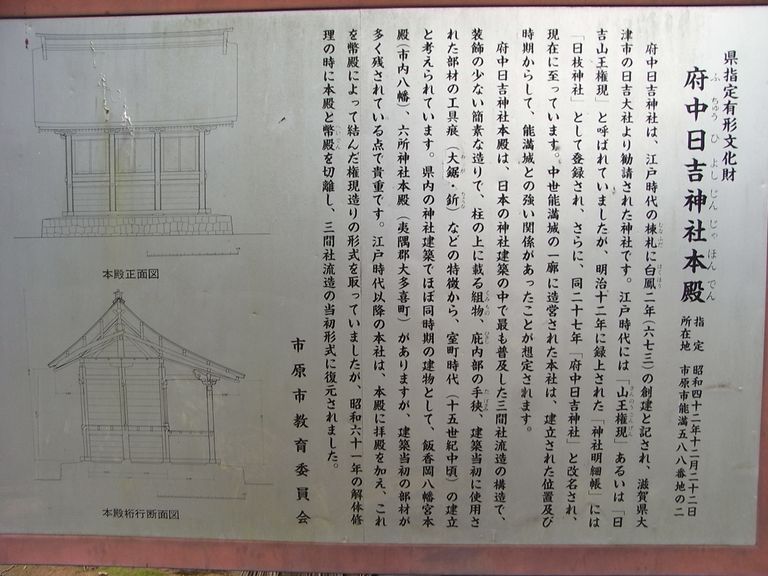 県指定有形文化財
府中日吉神社本殿
ふちゅうひよしじんじゃほんでん
指定　昭和四十二年十二月二十二日
所在地　市原市能満五八八番地の二
府中日吉神社は、江戸時代の棟札に白鳳二年（六七三）の創建と記され、滋賀県大
津市の日吉大社より勧請された神社です。江戸時代には「山王権現」あるいは「日
吉山王権現」と呼ばれていましたが、明治十二年に録上された「神社明細帳」には
「日枝神社」として登録され、さらに、同二十七年「府中日吉神社」と改名され、
現在に至っています。中世能満城の一廓に造営された本社は、建立された位置及び
時期からして、能満城との強い関係があったことが想定されます。
府中日吉神社本殿は、日本の神社建築の中で最も普及した三間社流造の構造で、
装飾の少ない簡素な造りで、柱の上に載る組物、庇内部の手挟、建築当初に使用さ
れた部材の工具痕（大鋸・釿）などの特徴から、室町時代（十五世紀中頃）の建立
と考えられています。県内の神社建築でほぼ同時期の建物として、飯香岡八幡宮本
殿（市内八幡）、六所神社本殿（夷隅郡大多喜町）がありますが、建築当初の部材が
多く残されている点で貴重です。江戸時代以降の本社は、本殿に拝殿を加え、これ
を幣殿によって結んだ権現造りの形式を取っていましたが、昭和六十一年の解体修
理の時に本殿と幣殿を切離し、三間社流造の当初形式に復元されました。
市原市教育委員会
本殿正面図
本殿桁行断面図